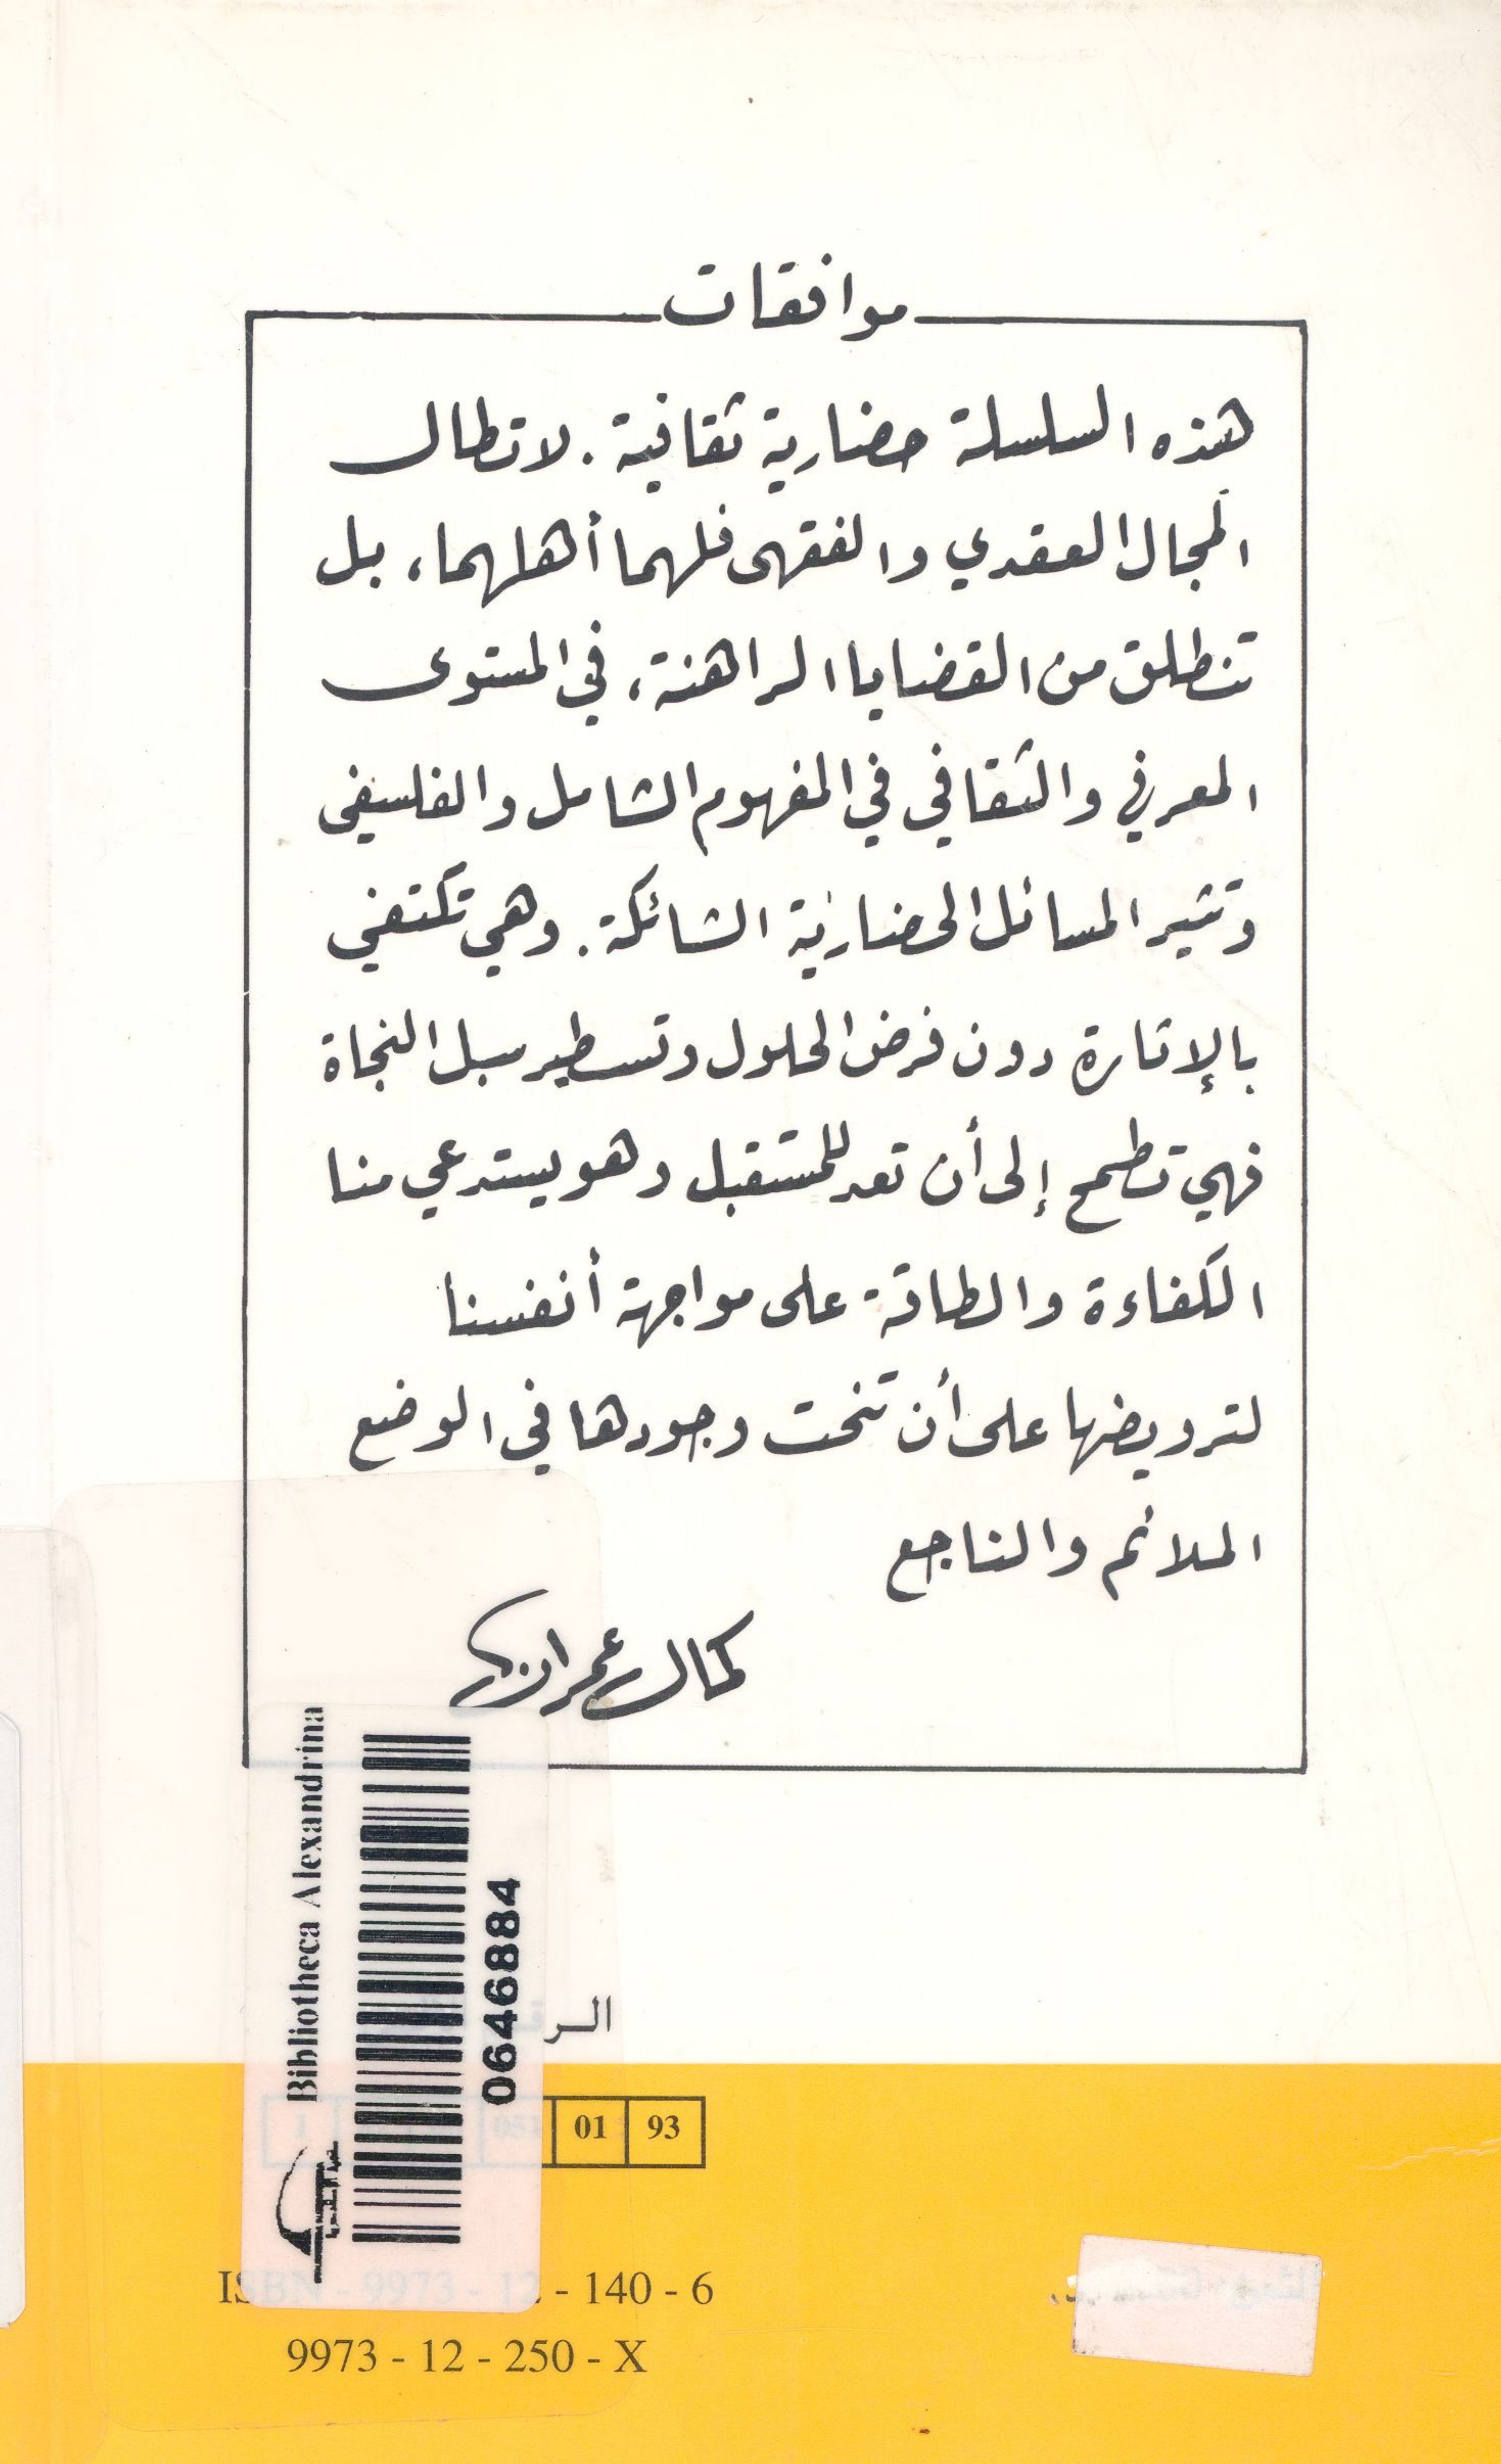 موافقات
هذه السلسلة حضارية ثقافية. لا تطال
المجال العقدي والفقهي فلهما أهلهما، بل
تنطلق من القضايا الراهنة، في المستوى
المعرفي والثقافي في المفهوم الشامل والفلسفي
وتثير المسائل الحضارية الشائكة. وهي تكتفي
بالإثارة دون فرض الحلول وتسطير سبل النجاة
فهي تطمح إلى أن تعد للمستقبل وهو يستدعي منا
الكفاءة والطاقة على مواجهة أنفسنا
لترويضها على أن تنحت وجودها في الوضع
الملائم والناجع
كمال عمران
Bibliotheca Alexandrina
0646884
01 93
ISBN - 9973 - 12 - 140 - 6
9973 - 12 - 250 - X